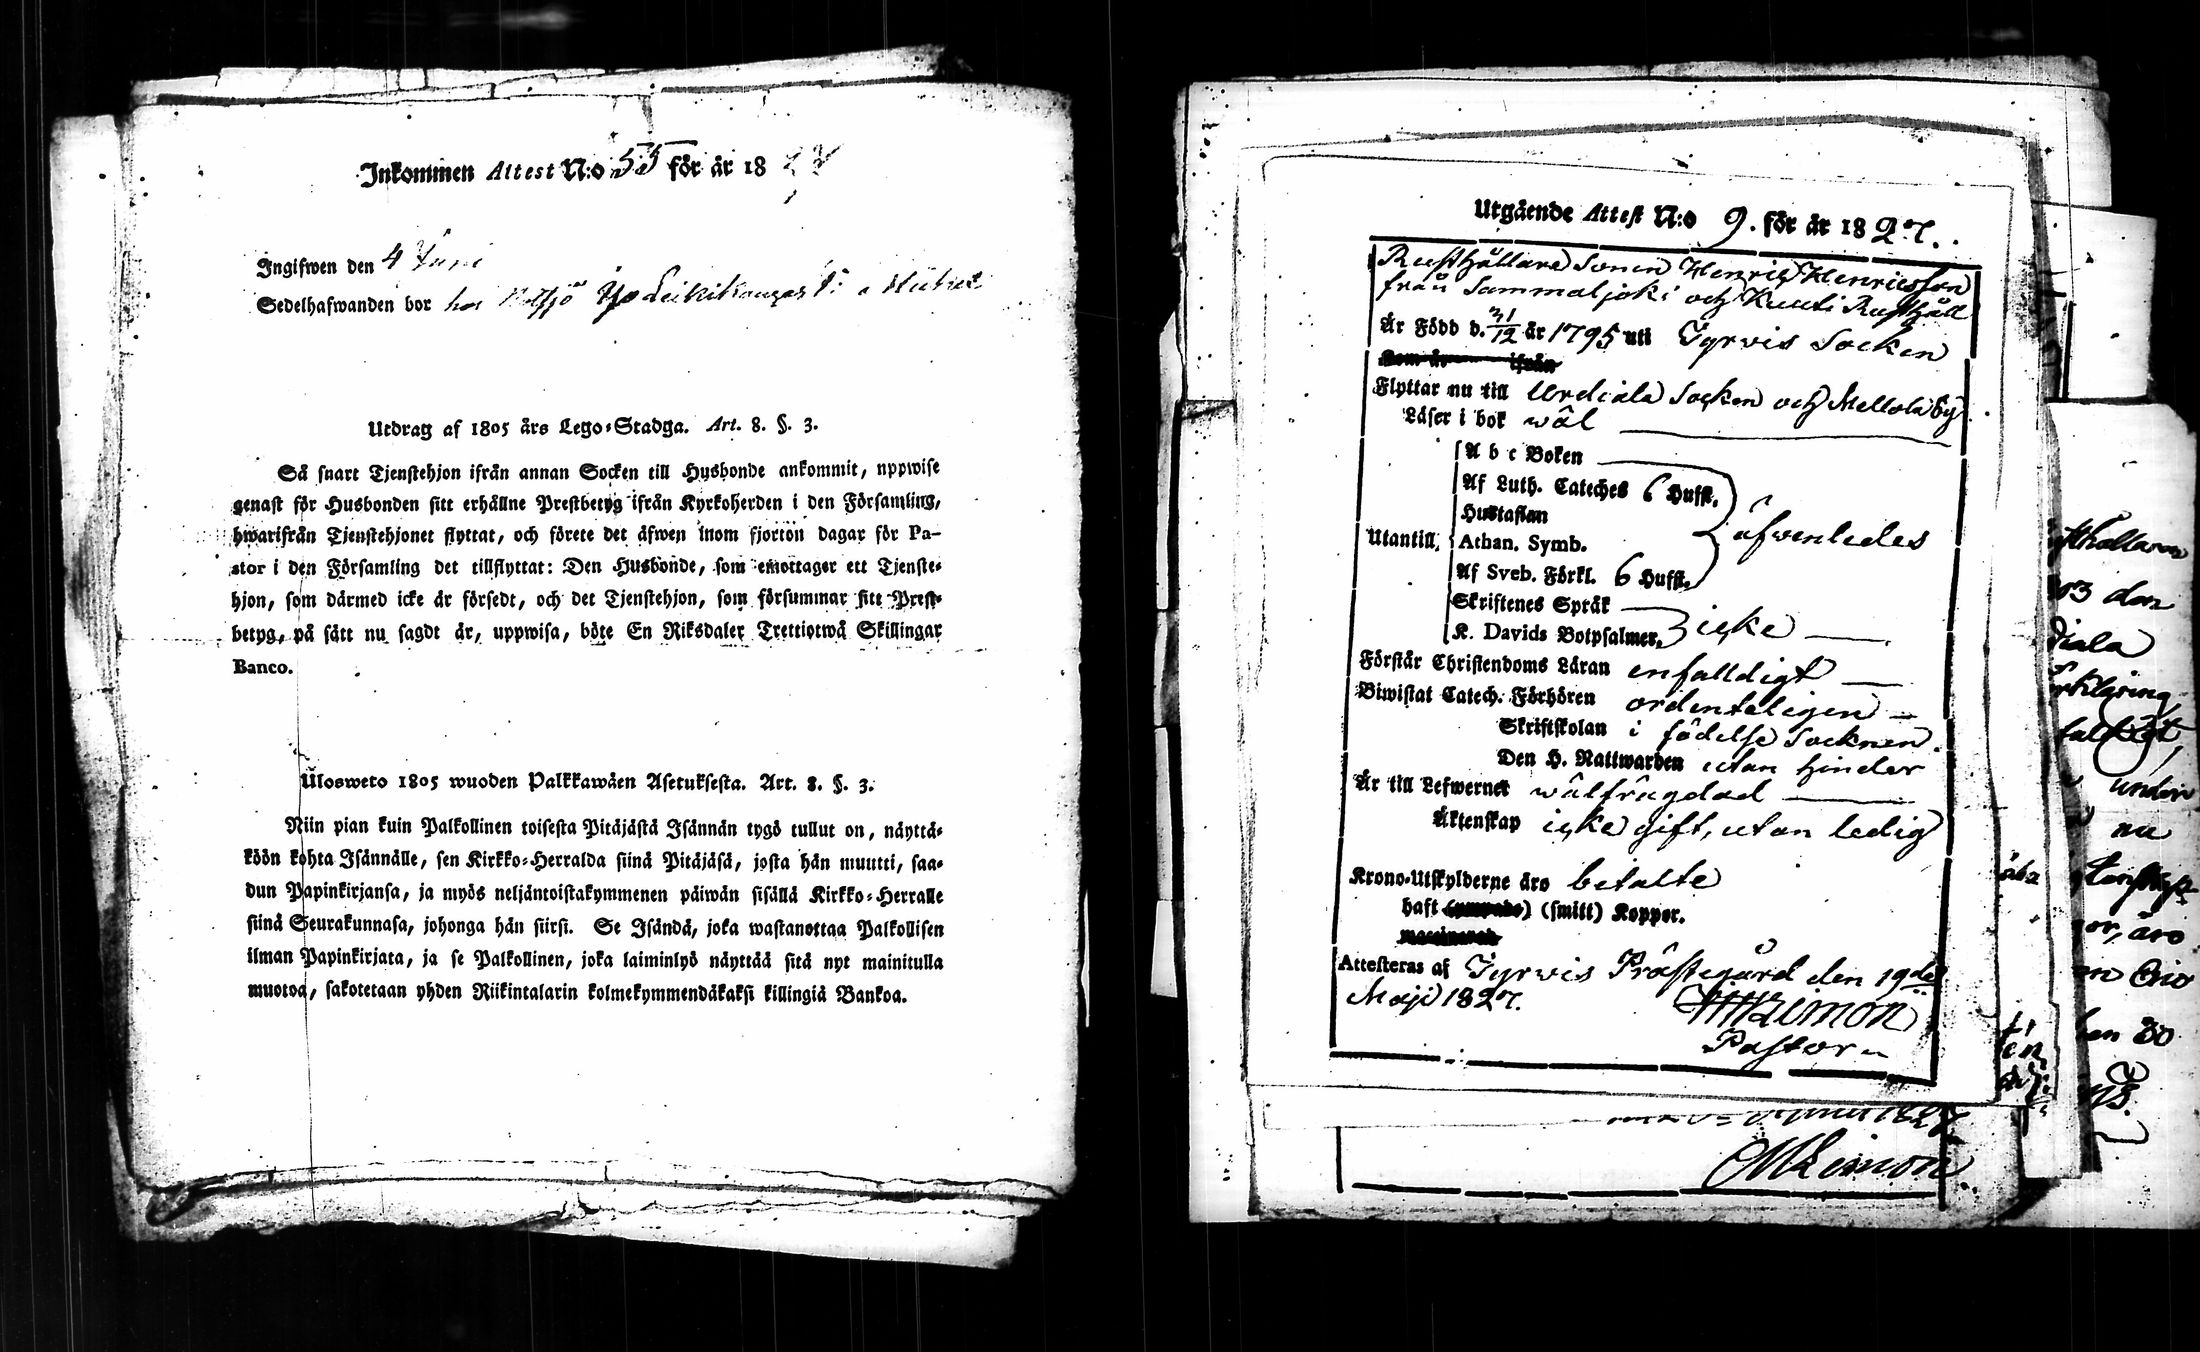 Inkommen Attest N:o 55 för år 18 27
Ingifwen den 4 Juni
Sedelhafwanden bor hos
Utdrag af 1805 års Lego-Stadga. Art. 8. §. 3.
Så snart Tjenstehjon ifrån annan Socken till Husbonde ankommit, uppwise
genast för Husbonden sitt erhållne Prestbetyg ifrån Kyrkoherden i den Församling,
hwarifrån Tjenstehjonet flyttat, och förete det äfwen inom fjorton dagar för Pa-
stor i den Församling det tillflyttat: Den Husbonde, som emottager ett Tjenste-
hjon, som därmed icke är försedt, och det Tjenstehjon, som försummar sitt Prest-
betyg, på sätt nu sagdt är, uppwisa, böte En Riksdaler Trettiotwå Skillingar
Banco.
Ulosweto 1805 wuoden Palkkawäen Asetuksesta. Art. 8. §. 3.
Niin pian kuin Palkollinen toisesta Pitäjästä Isännän tygö tullut on, näyttä-
köön kohta Isännälle, sen Kirkko-Herralda siinä Pitäjäsä, josta hän muutti, saa-
dun Papinkirjansa, ja myös neljäntoistakymmenen päiwän sisällä Kirkko-Herralle
siinä Seurakunnasa, johonga hän siirsi. Se Isändä, joka wastanottaa Palkollisen
ilman Papinkirjata, ja se Palkollinen, joka laiminlyö näyttää sitä nyt mainitulla
muotoa, sakotetaan yhden Riikintalarin kolmekymmendäkaksi killingiä Bankoa.
Utgående Attest N:o 9. för år 1827.
Rusthållare sonen Henric Henricsson
från Sammaljoki och Kuuti Rusthåll
Är Född d. 31/12 år 1795 uti Tyrvis Socken
Som är ifrån
Flyttar nu till Urdiala Socken och Mellola by
Läser i bok wäl
A b c Boken
Af Luth. Cateches 6 Hufst.
Hustaflan
Utantill, Athan. Symb. äfwenledes
Af Sveb. Förkl. 6 Hufst.
Skriftenes Språk
K. Davids Botpsalmer, icke
Förstår Christendoms Läran enfalldigt
Biwistat Catech. Förhören ordenteligen
Skriftskolan i födelse Socknen.
Den H. Nattwarden utan hinder
Är till Lefwernet wälfrägdad
Äktenskap icke gift, utan ledig
Krono-Utskylderne äro betalte
haft (smitt) Koppor.
Attesteras af Tyrvis Prästegård den 19de
Maji 1827.
Limon
Pastor
Limon
diala
under
nu
äro